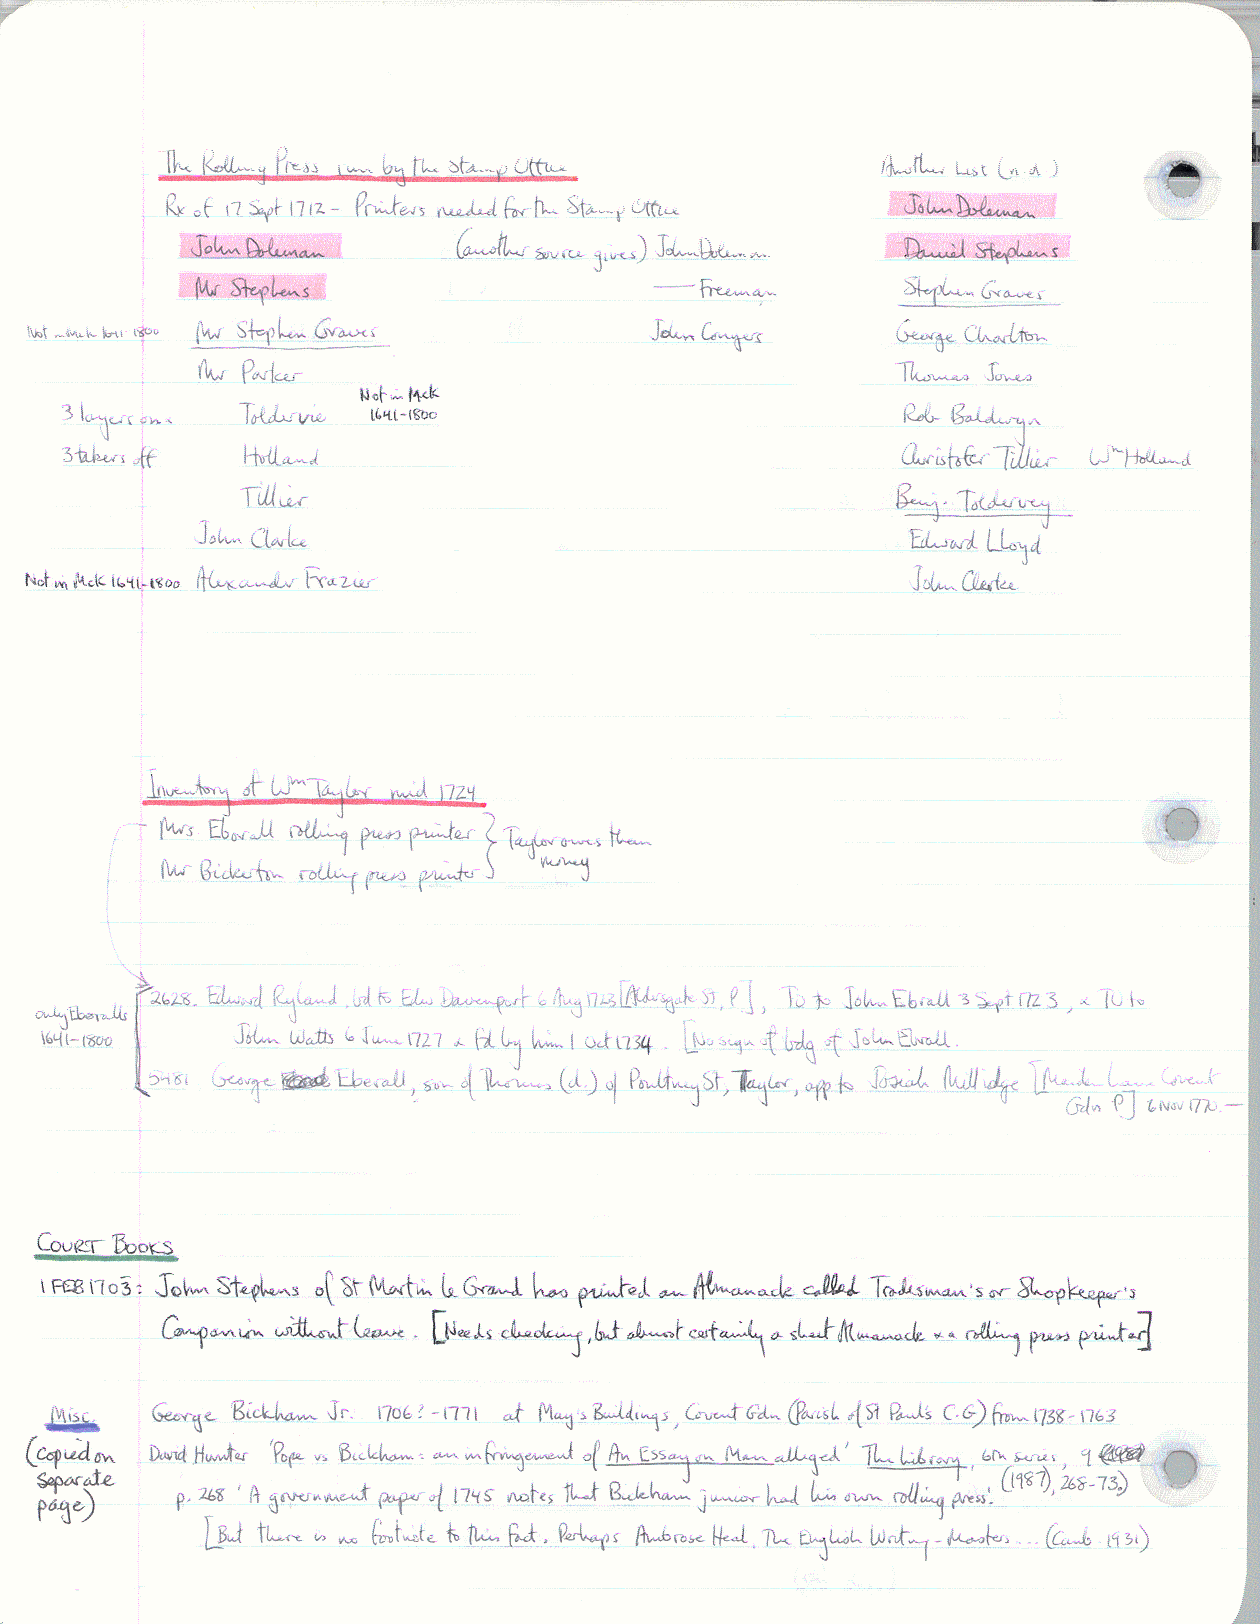 The Rolling Press run by the Stamp Office
Another List (n.d.)
Rx of 17 Sept 1712 - Printers needed for the Stamp Office
John Doleman
John Doleman (another source gives) John Doleman
Daniel Stephens
Mr Stephens — Freeman
Stephen Graves
Not in McK 1641-1800 Mr Stephen Graves John Conyers
George Charlton
Mr Parker
Thomas Jones
Not in McK
3 layers on Toldervie 1641-1800
Rob Baldwyn
3 takers off Holland
Christofer Tillier Wm Holland
Tillier
Benj. Toldervey
John Clarke
Edward Lloyd
Not in McK 1641-1800 Alexander Frazier
John Clerke
Inventory of Wm Taylor mid 1724
Mrs. Eborall rolling press printer } Taylor owes them
Mr Bickerton rolling press printer } money
2628. Edward Ryland bd to Edw Davenport 6 Aug 1723 [Aldersgate St, P], TO to John Ebrall 3 Sept 1723, & TO to
only Eboralls
1641-1800
John Watts 6 June 1727 & fd by him 1 Oct 1734. [No sign of bdg of John Ebrall.
5481 George Eberall, son of Thomas (d.) of Poultney St, Taylor, app to Josiah Millidge [Maiden Lane Covent
Gdn P.] 6 Nov 1770. —
COURT BOOKS
1 FEB 1703: John Stephens of St Martin le Grand has printed an Almanack called Tradesman's or Shopkeeper's
Companion without leave. [Needs checking, but almost certainly a sheet Almanack & a rolling press printer]
Misc. George Bickham Jr. 1706?-1771 at May's Buildings, Covent Gdn (Parish of St Paul's C.G) from 1738-1763
(copied on
separate
page)
David Hunter 'Pope vs Bickham: an infringement of An Essay on Man alleged' The Library, 6th series, 9
(1987), 268-73.)
p. 268 'A government paper of 1745 notes that Bickham junior had his own rolling press.'
[But there is no footnote to this fact. Perhaps Ambrose Heal, The English Writing-Masters... (Camb 1931)